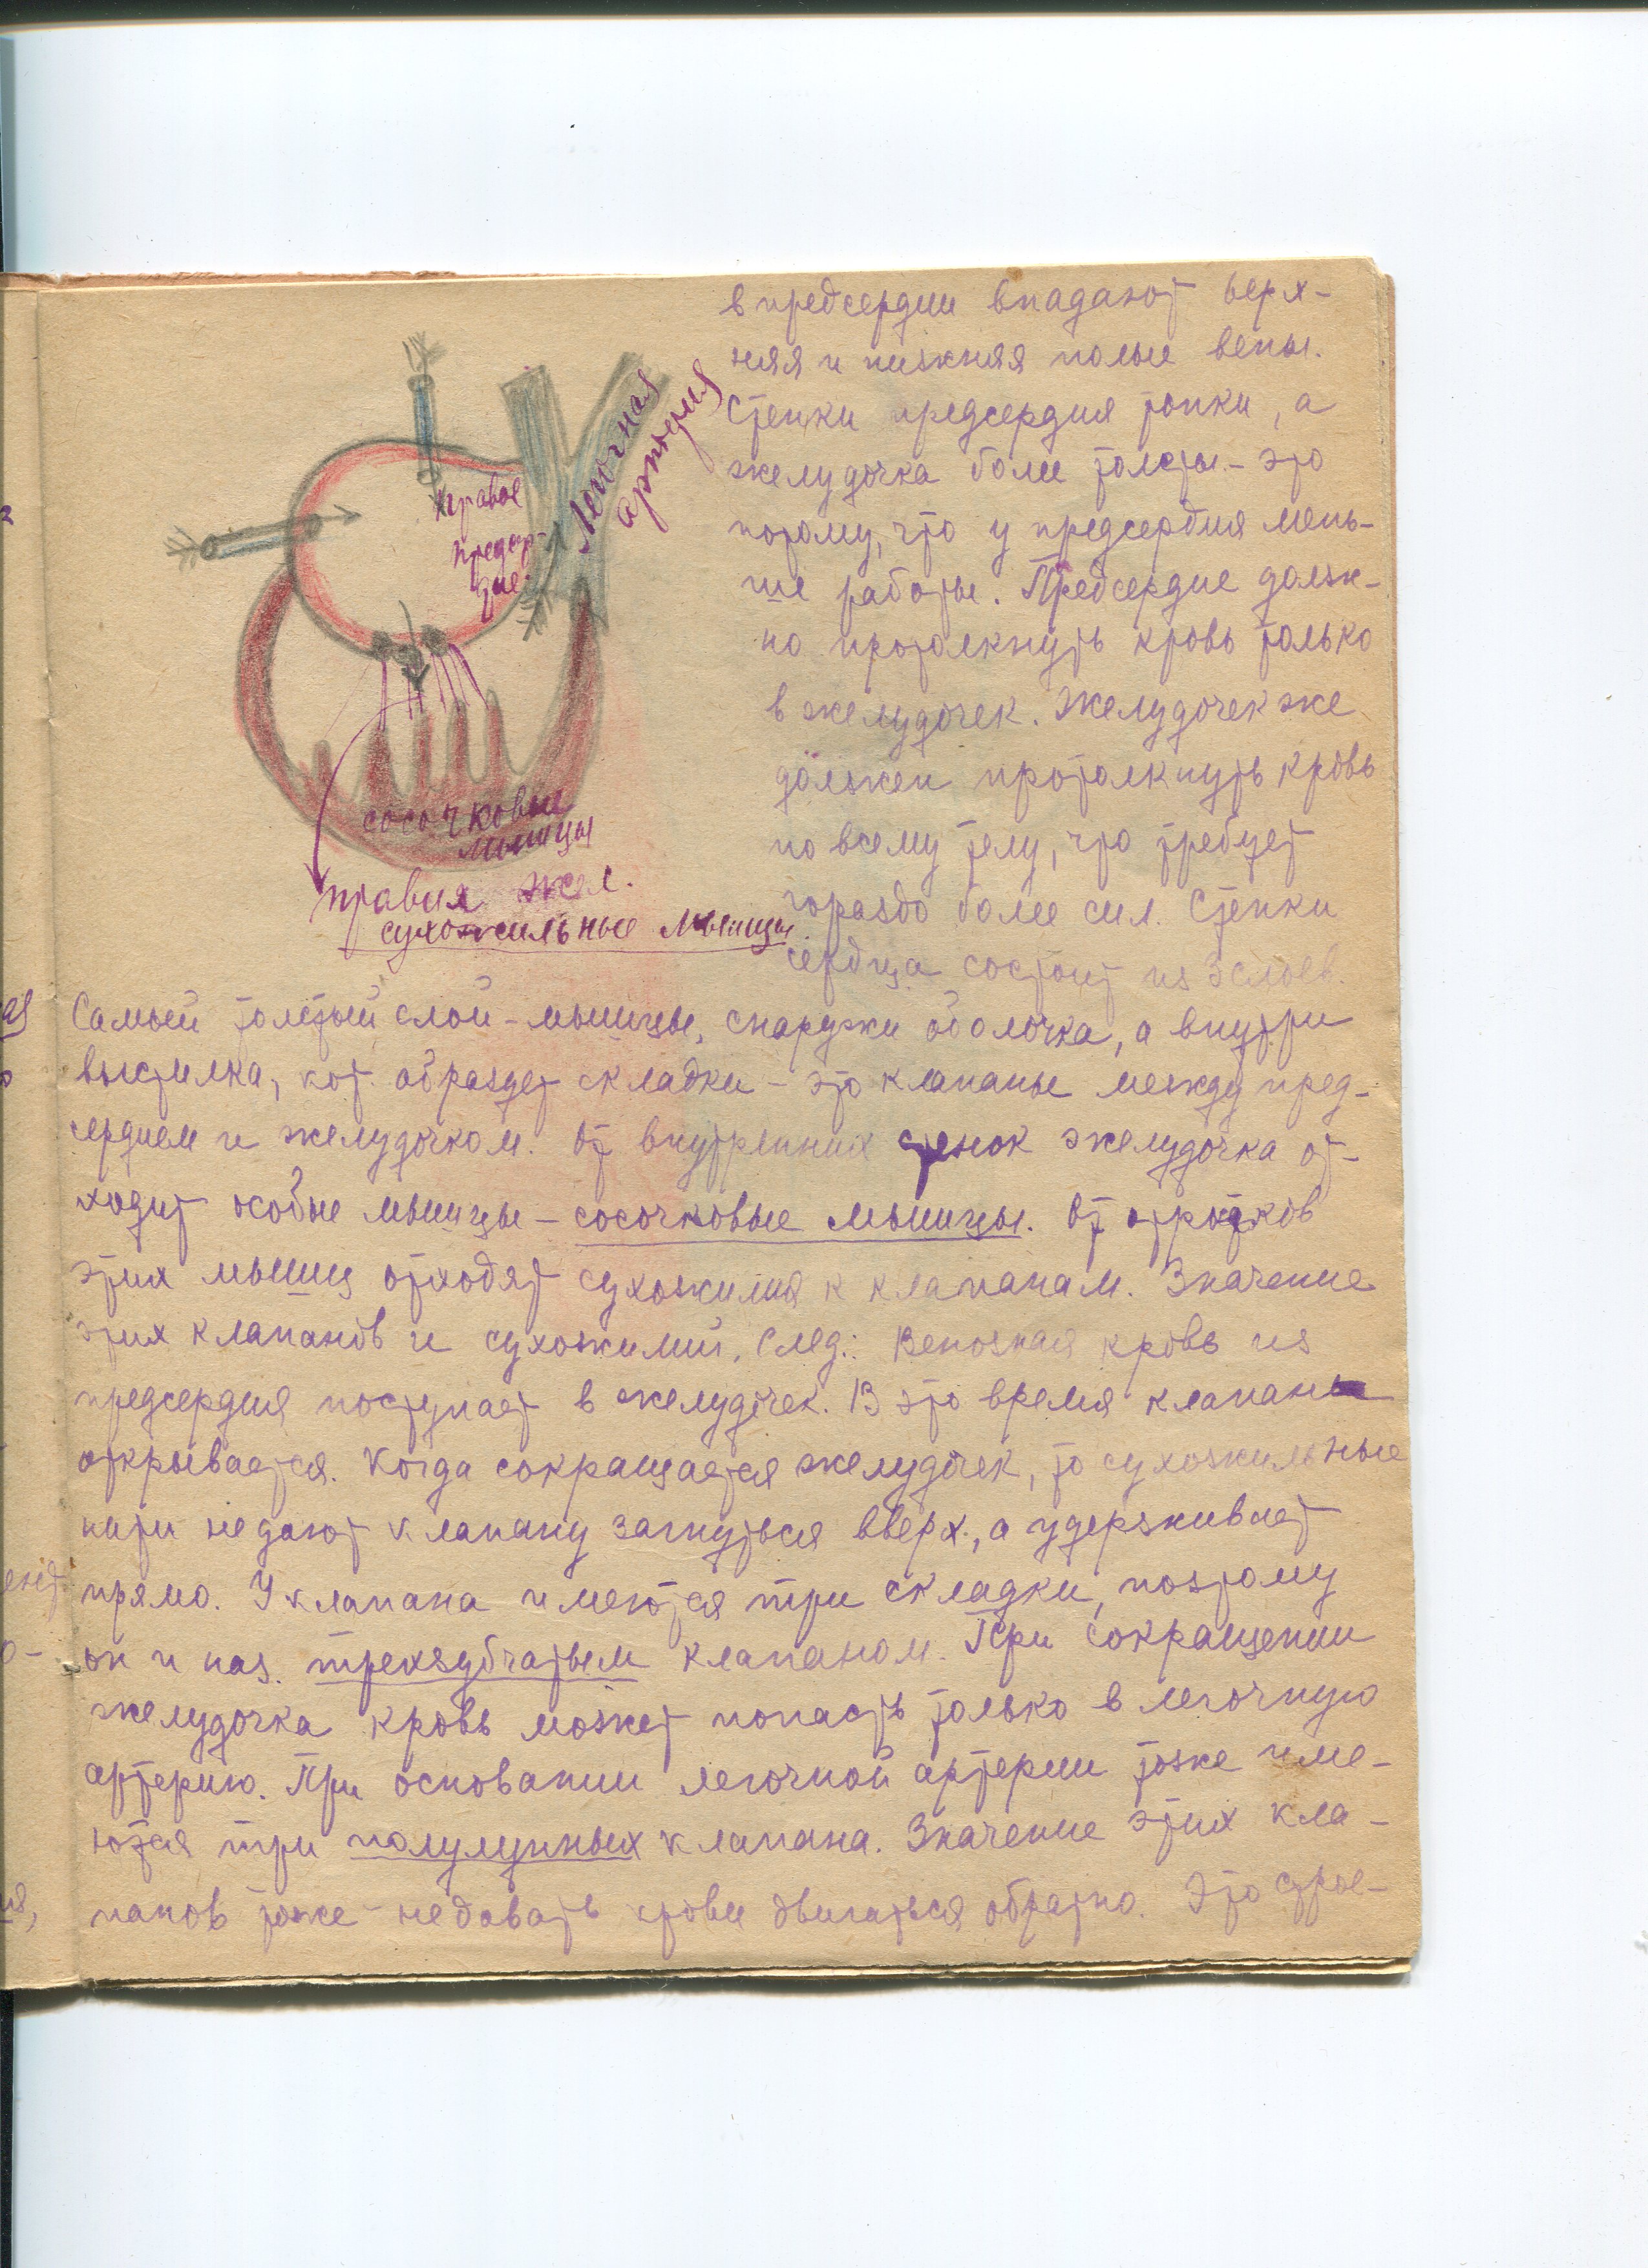 в предсердии впадают верх-
няя и нижняя полые вены.
Стенки предсердия тонки, а
желудочка более толсты - это
потому, что у предсердия мень-
ше работы. Предсердие долж-
но протолкнуть кровь только
в желудочек. Желудочек же
должен протолкнуть кровь
по всему телу, что требует
гораздо более сил. Стенки
сердца состоит из 3 слоев.
Легочная
артерия
Правое
предсер-
дие
сосочковые
мышцы
правия жел.
сухожильные мышцы
Самый толстый слой - мышцы, снаружи оболочка, а внутри
выстилка, кот. образует складки - это клапаны между пред-
сердием и желудочком. От внутренних стенок желудочка от-
ходит особые мышцы - сосочковые мышцы. От отростков
этих мышц отходят сухожилия к клапанам. Значение
этих клапанов и сухожилий. След.: Венозная кровь из
предсердия поступает в желудочек. В это время клапан
открывается. Когда сокращается желудочек, то сухожильные
нити не дают клапану загнуться вверх, а удерживает
прямо. У клапана имеются три складки, поэтому
он и наз. трехзубчатым клапаном. При сокращении
желудочка кровь может попасть только в легочную
артерию. При основании легочной артерии тоже име-
ются три полулунных клапана. Значение этих кла-
панов тоже - не давать крови двигаться обратно. Это строе-